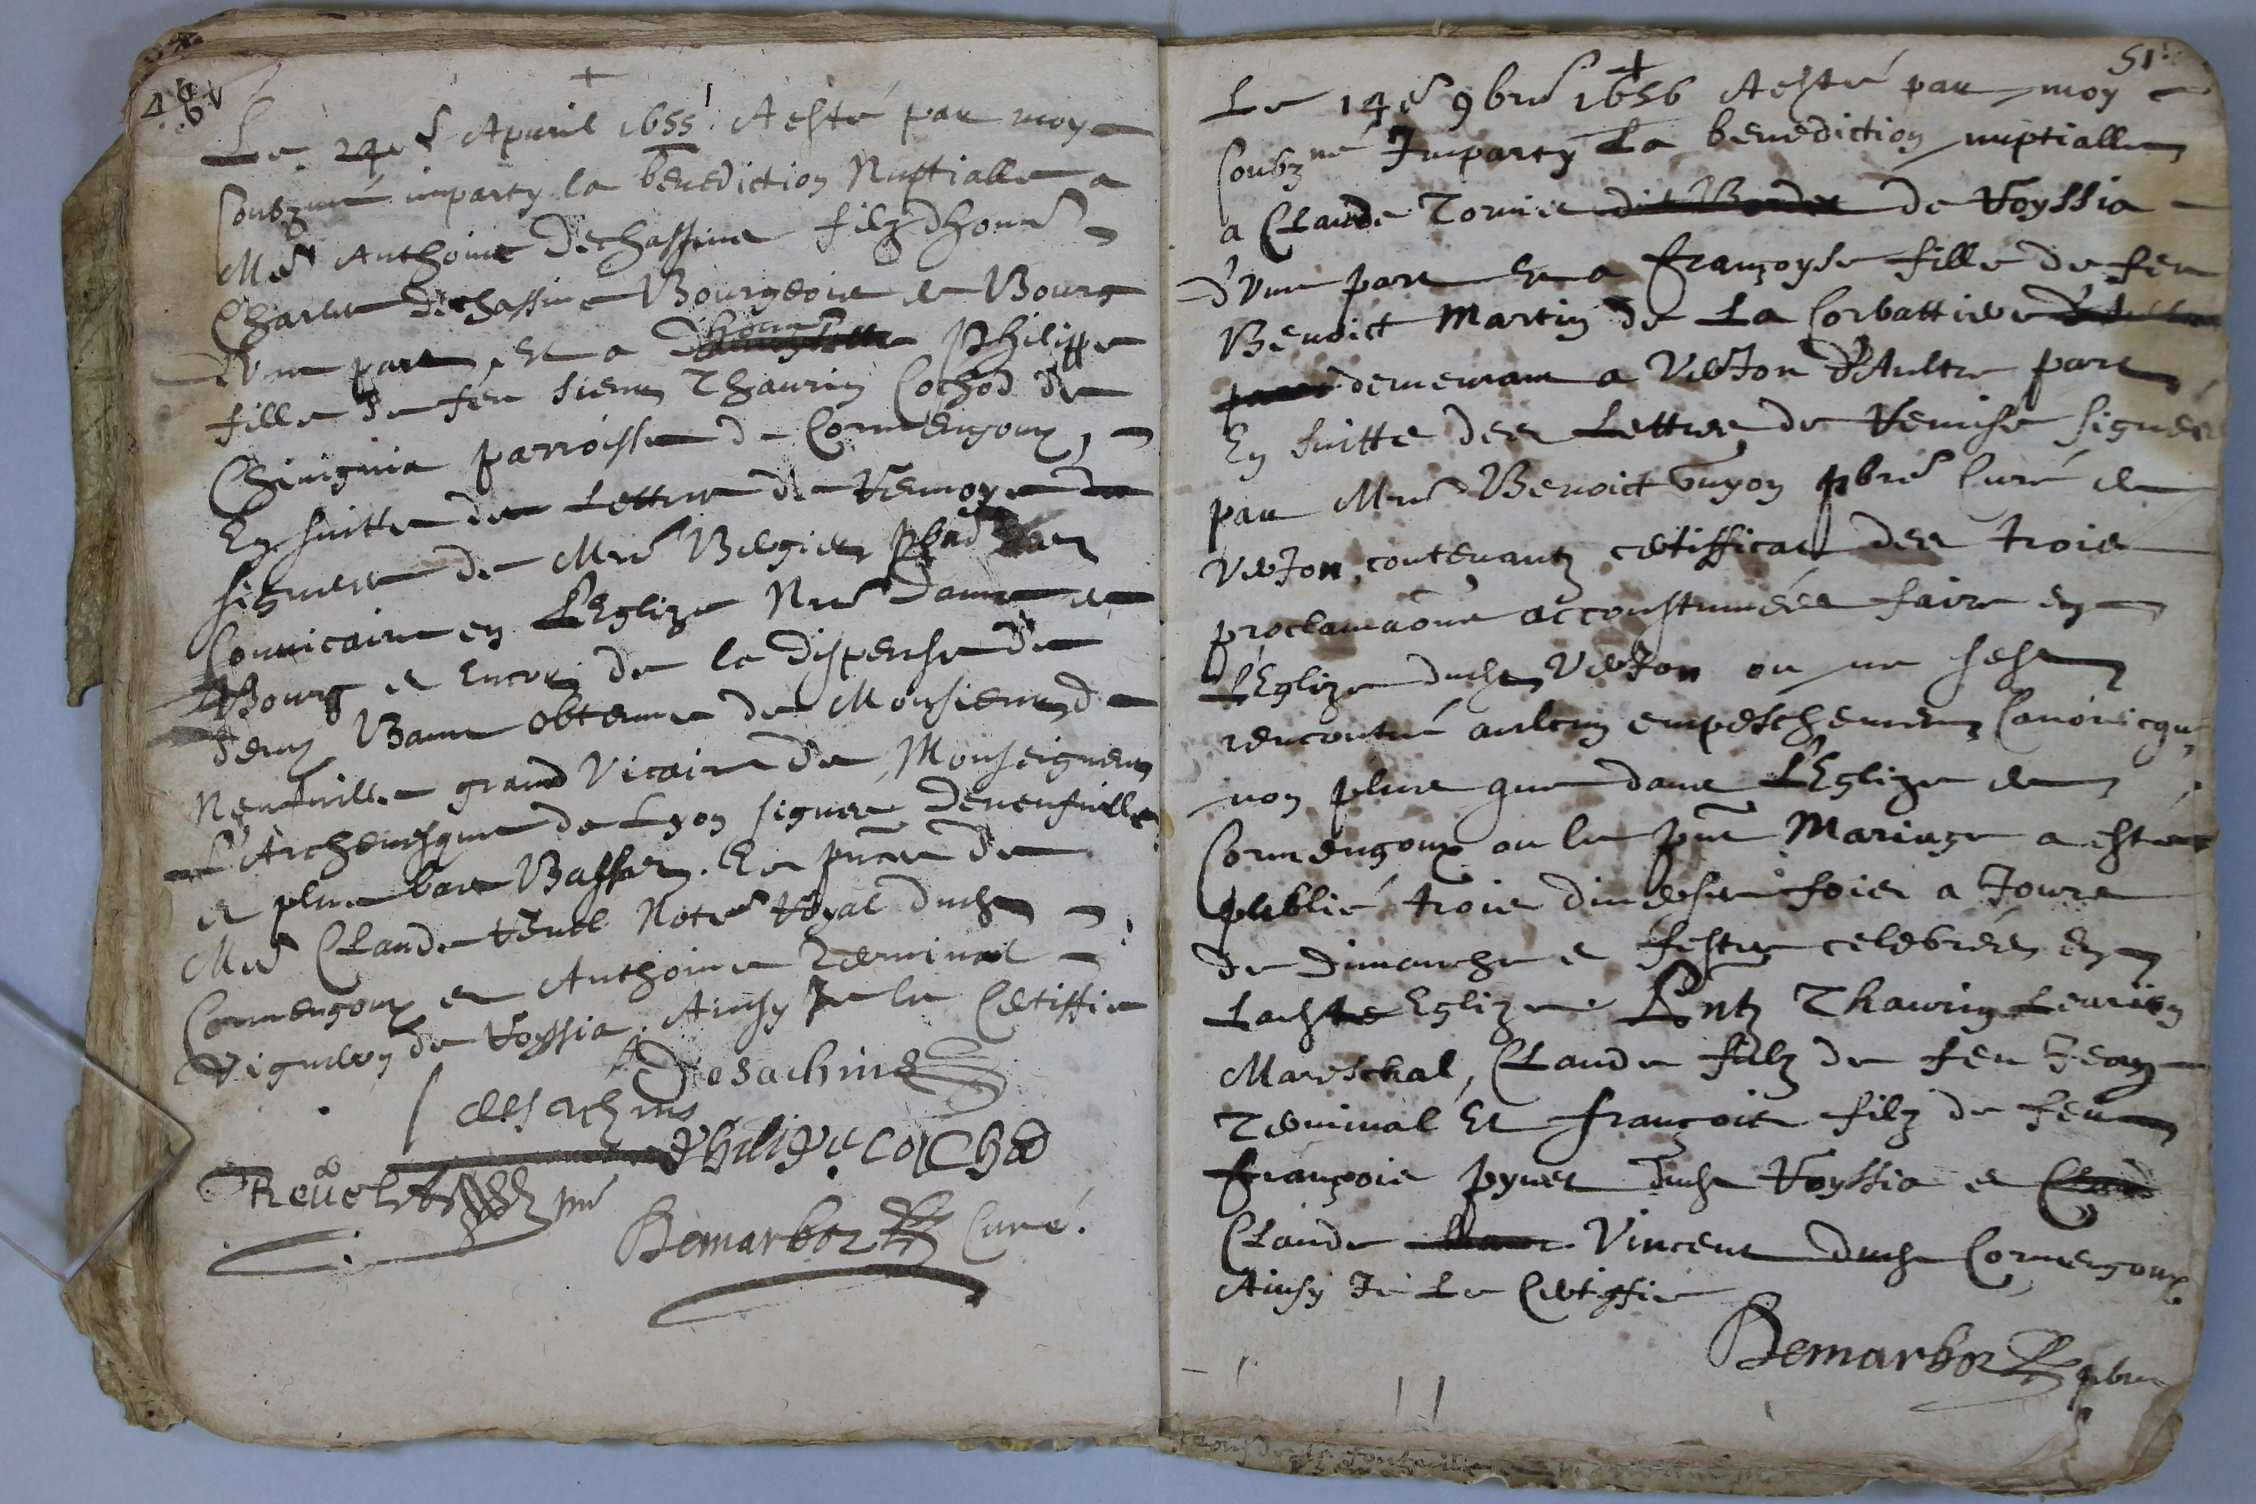 Le 24e Apuril 1655 A esté par moy
soubzné imparty la benediction Nuptialle a
Me Anthoine Dechassine filz dhonne
Charles dechassine Bourgeois de Bourg
d'vne part, Et a honn Philippe
fille de feu sieur Thaurin Cochod de
Chinignia parroisse de Cormengoux,
En suitte des Lettres de Remoye
signees de Mre Bergier pbre
Convicaire en L'Eglize Nre Dame de
Bourg et encor de la dispense de
deux Bans obtenue de Monsieur de
Neufville grand Vicaire de Monseigneur
L'Archevesque de Lyon signee Deneufville
et plus bas Basset. En pnce de
Me Claude Revel Notre Royal dudt
Cormengoux et Anthoine Terminal
Vigneron de Voyssia. Ainsy Je le Certiffie
Desachins
desachins
Philipe Cochod
Revel pnt
Demarboz Curé.
51
Le 14e 9bre 1656 A esté par moy
soubzné Imparty La benediction nuptialle
a Claude Tornier dit Bordet de Voyssia
d'Vne part Et a françoyse fille de feu
Benoict Martin de La Corbattiere
demeurant a VerJon d'Aultre part
En suitte des Lettres de Remise signées
par Mre Benoict Guyon pbre Curé de
VerJon, contenantz certifficat des trois
proclamaons accoustumées faire en
L'Eglize dudt VerJon ou ne sest
rencontré aulcun empeschement Canonicque
non plus que dans L'Eglize de
Cormengoux ou le pnt Mariage a esté
publié trois diverses fois a Jours
de dimanche et festes celebrées en
Ladste Eglize Pntz Thaurin Leariey
Mareschal, Claude filz de feu Jean
Terminal Et françois filz de feu
françois pynet dudt Voyssia et
Claude Vincent dudt Cormengoux
Ainsy Je Le Certiffie
Demarboz pbre